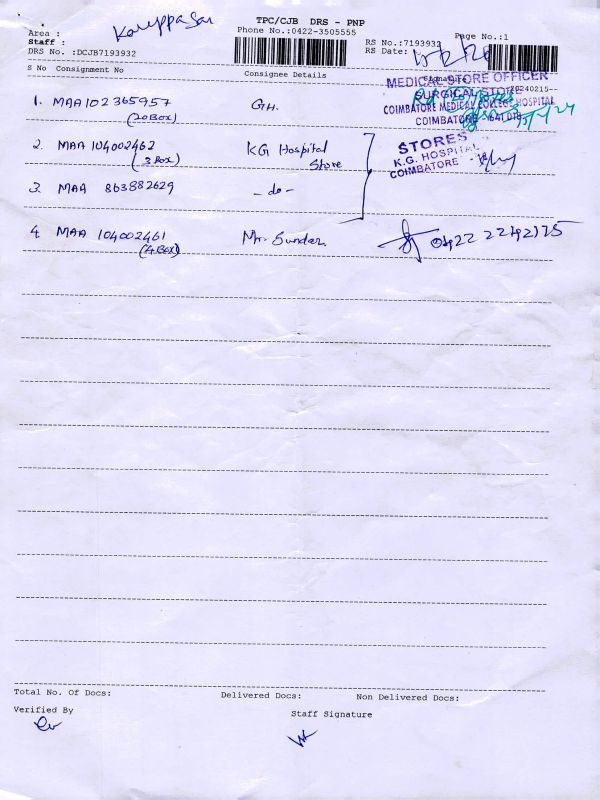 TPC/CJB DRS - PNP
Phone No.:0422-3505555
Page No.:1
Area :
Staff :
DRS No. :DCJB7193932
RS No.:7193932
RS Date:
S No Consignment No Consignee Details
20240215-
MEDICAL STORE OFFICER
SURGICAL STORE
COIMBATORE MEDICAL COLLEGE HOSPITAL
COIMBATORE - 641 018
1. MAA 102365957 GH.
(20Box)
2. MAA 104002462 KG Hospital
(3Box) Store
STORES
K.G. HOSPITAL
COIMBATORE -
3. MAA 863882629 - do -
4. MAA 104002461 Mr. Sundar 0422 2242125
(4Box)
Total No. Of Docs: Delivered Docs: Non Delivered Docs:
Verified By Staff Signature